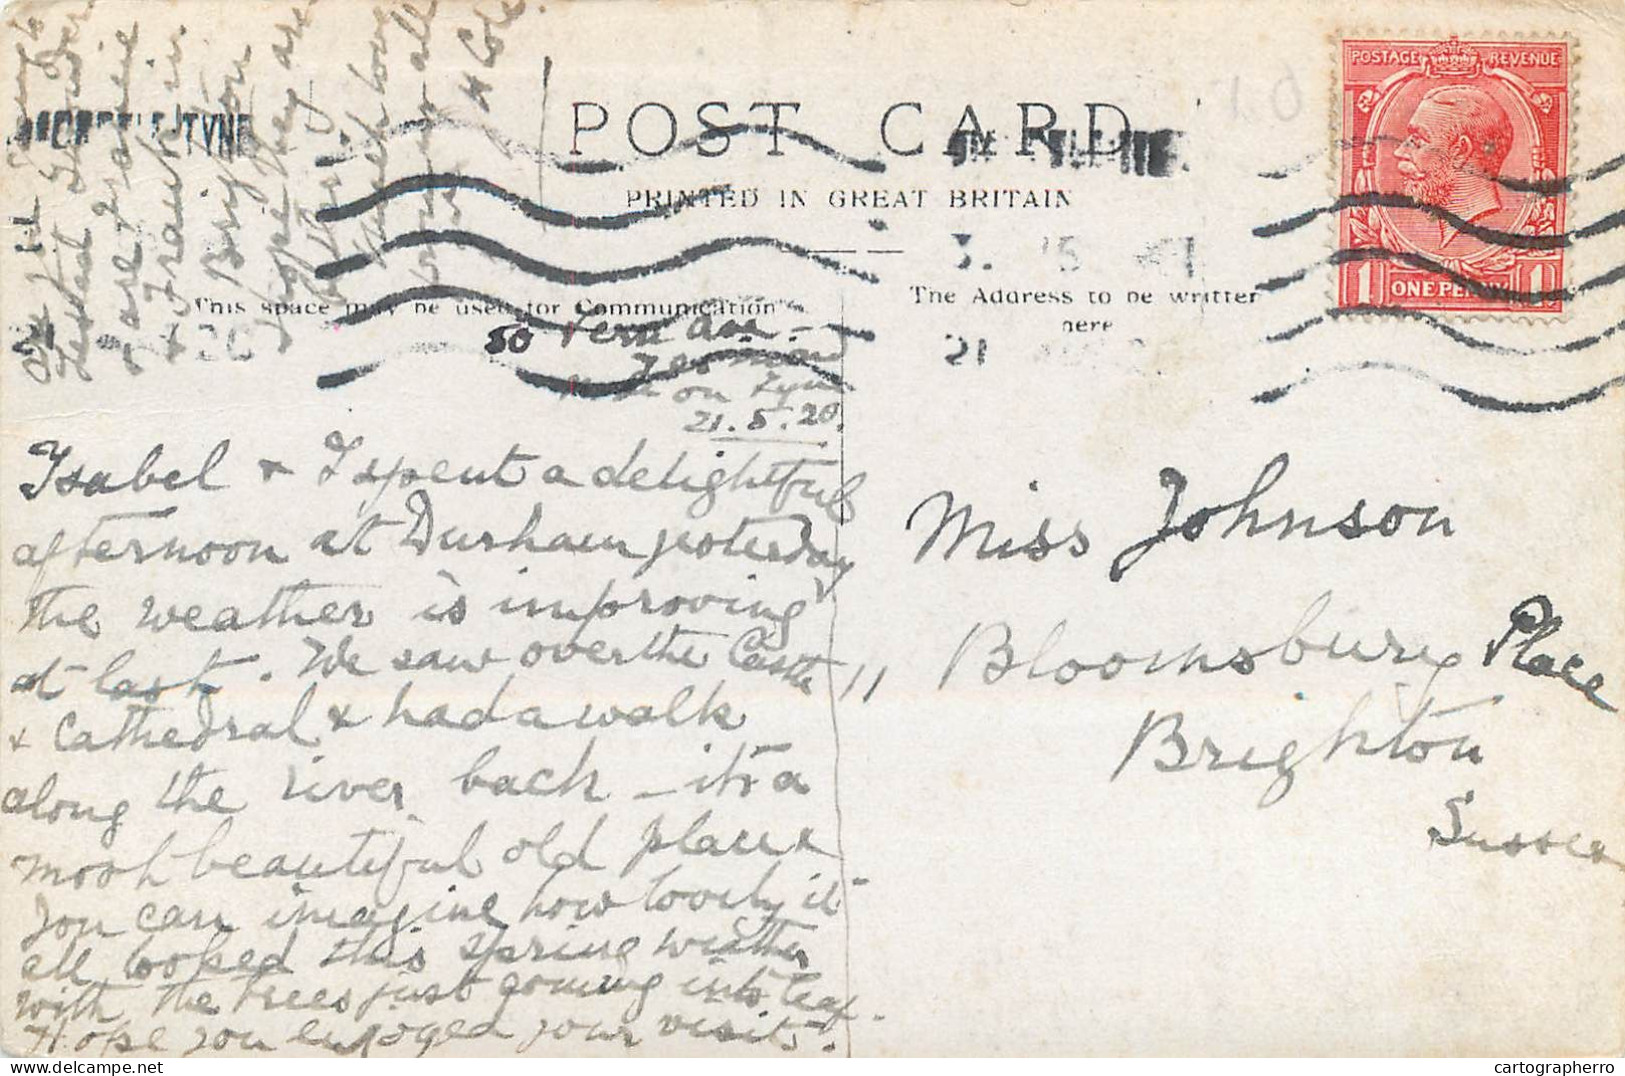 POST CARD
PRINTED IN GREAT BRITAIN
This space may be used for Communication
The Address to be written
here
POSTAGE REVENUE
1 ONE PENNY 1
3. 15
21
50 Fern Ave
on Tyne
21.5.20.
Isabel & I spent a delightful
afternoon at Durham yesterday
the weather is improving
at last. We saw over the Castle
& Cathedral & had a walk
along the river back _ it's a
most beautiful old place
you can imagine how lovely it
all looked this spring weather
with the trees just coming into leaf.
Hope you enjoyed your visit.
& Frank in
Brighton
& hope they are
Much love
from us all
Miss Johnson
11 Bloomsbury Place
Brighton
Sussex
cartographerro